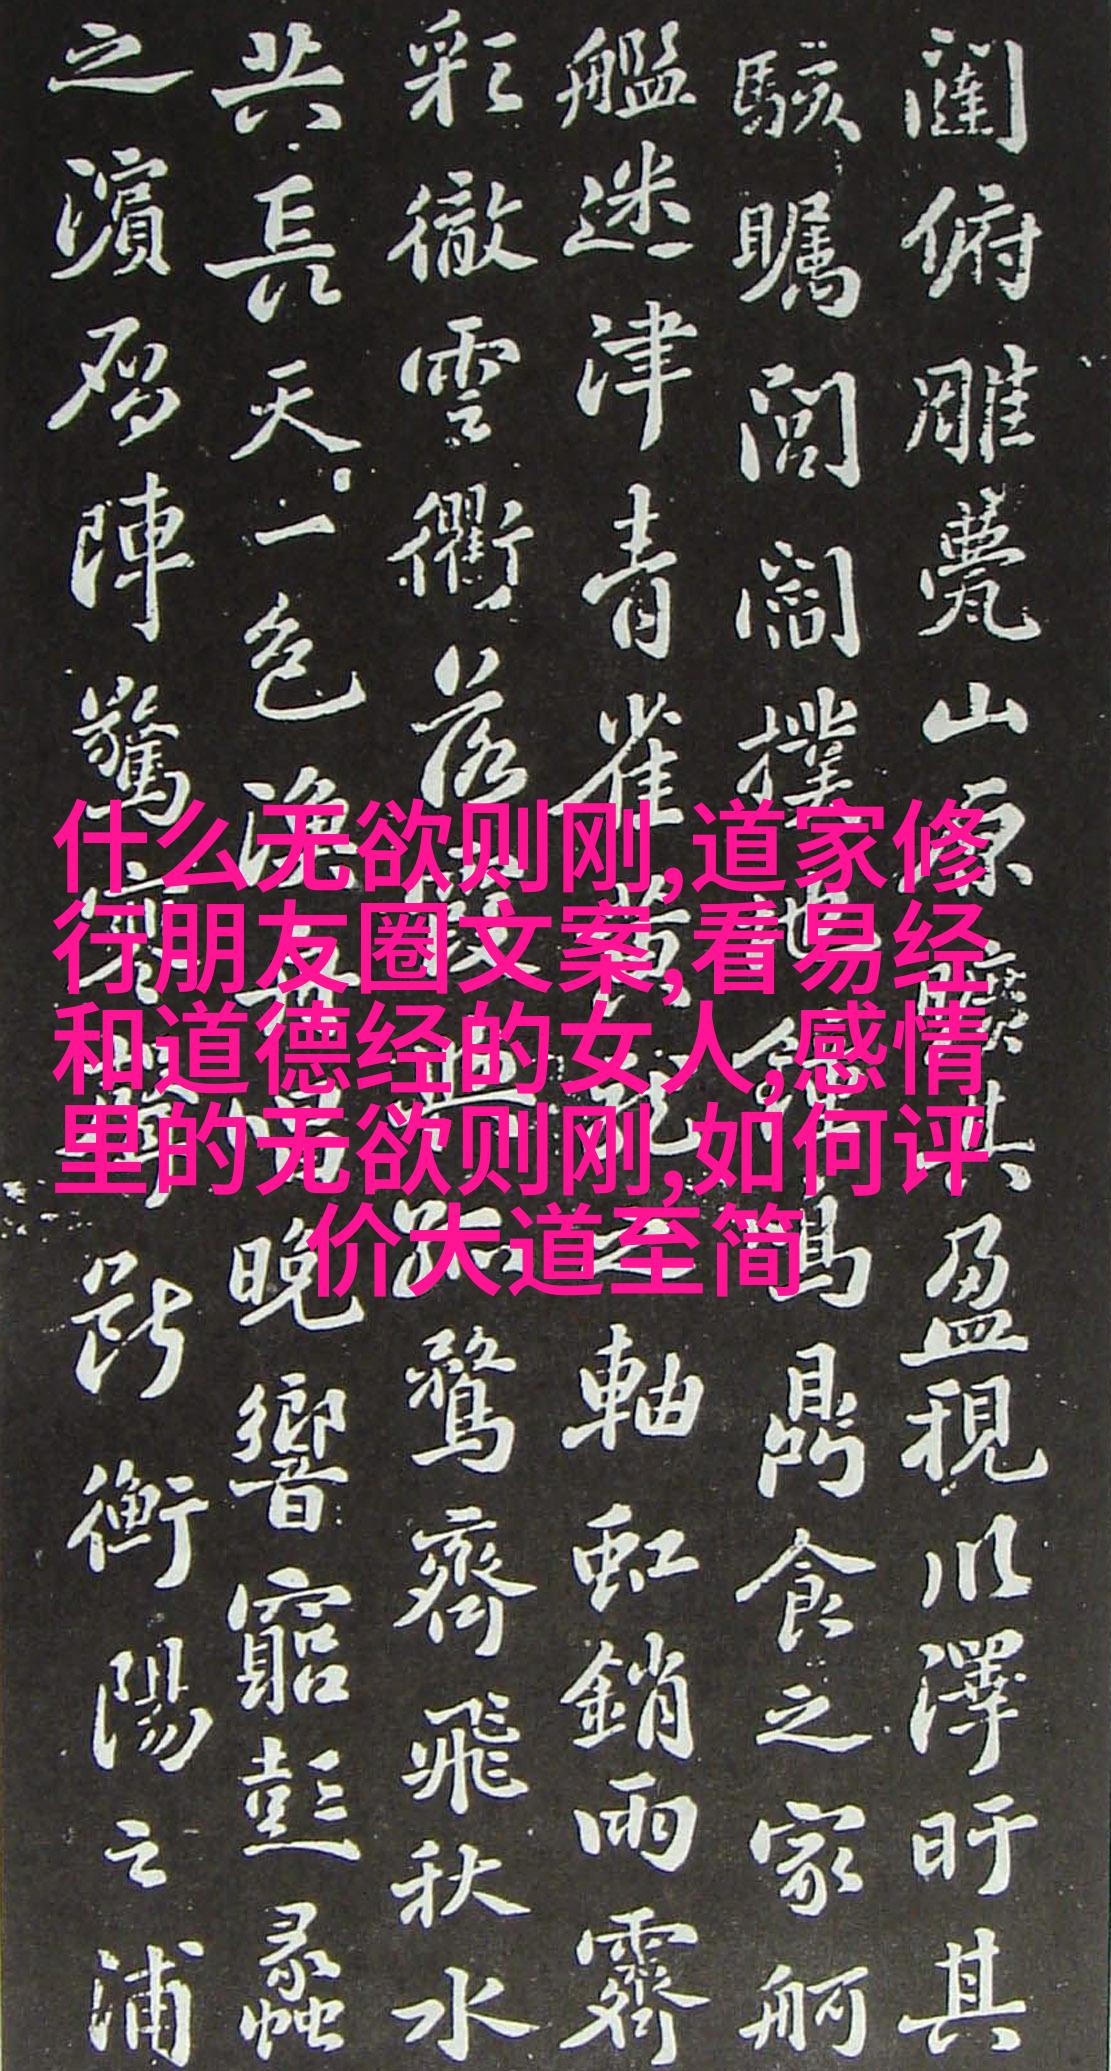 什么无欲则刚,道家修
行朋友圈文案,看易经
和道德经的女人,感情
里的无欲则刚,如何评
价大道至简
闥俯雕甍山原曠其盈視川澤盱其
駭矚閭閻撲地鍾鳴鼎食之家舸
艦迷津青雀黃龍之軸虹銷雨霽
彩徹雲衢落霞與孤鶩齊飛秋水
共長天一色漁舟唱晚響窮彭蠡
之濱雁陣驚寒聲斷衡陽之浦